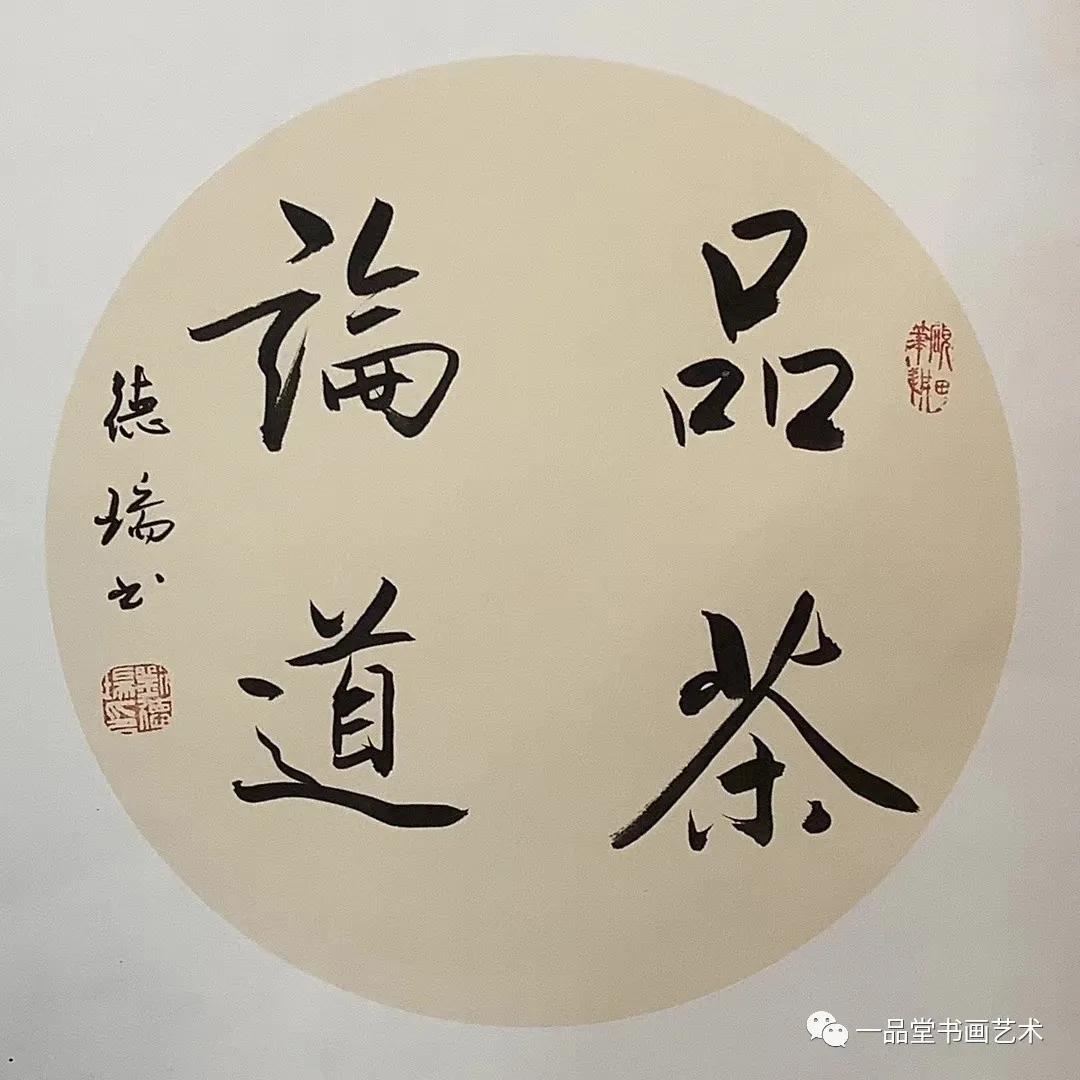 品茶
論道
德瑞书
一品堂书画艺术